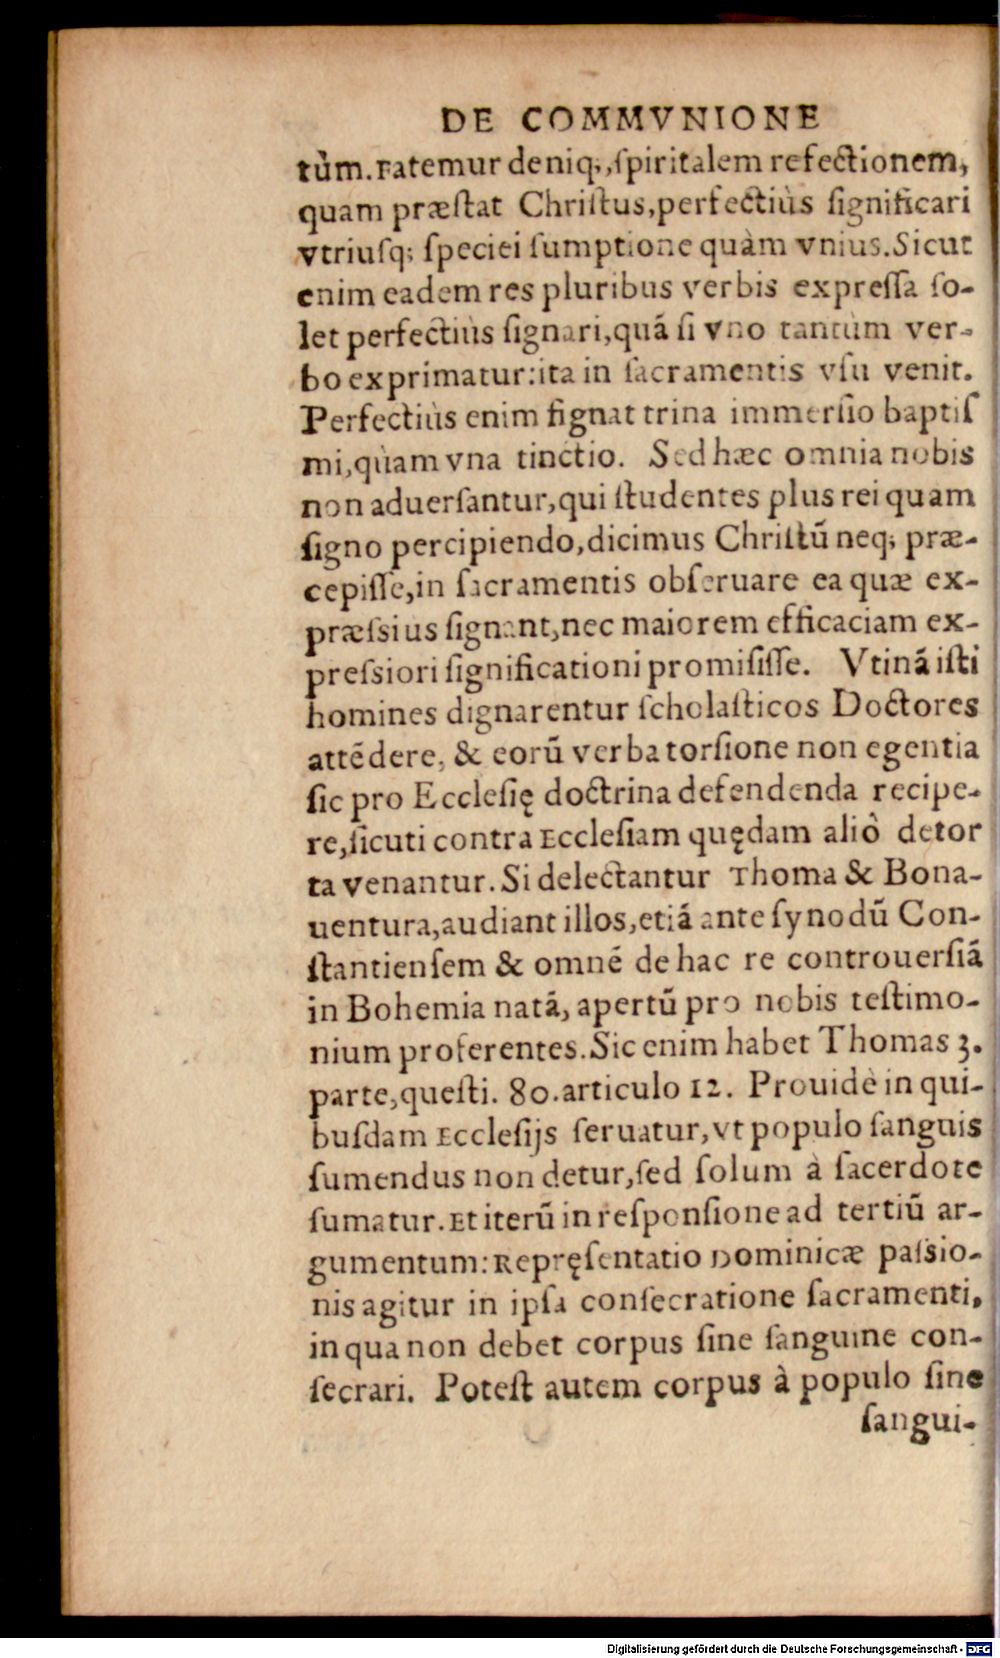 DE COMMVNIONE
tùm. Fatemur deniq;, ſpiritalem refectionem,
quam præſtat Chriſtus, perfectiùs ſignificari
vtriuſq; ſpeciei ſumptione quàm vnius. Sicut
enim eadem res pluribus verbis expreſſa ſo-
let perfectiùs ſignari, quã ſi vno tantùm ver-
bo exprimatur: ita in ſacramentis vſu venit.
Perfectiùs enim ſignat trina immerſio baptiſ
mi, quàm vna tinctio. Sed hæc omnia nobis
non aduerſantur, qui ſtudentes plus rei quam
ſigno percipiendo, dicimus Chriſtũ neq; præ-
cepiſſe, in ſacramentis obſeruare ea quæ ex-
præſsius ſignant, nec maiorem efficaciam ex-
preſsiori ſignificationi promiſiſſe. Vtinã iſti
homines dignarentur ſcholaſticos Doctores
attẽdere, & eorũ verba torſione non egentia
ſic pro Eccleſię doctrina defendenda recipe-
re, ſicuti contra Eccleſiam quędam aliò detor
ta venantur. Si delectantur Thoma & Bona-
uentura, audiant illos, etiã ante ſynodũ Con-
ſtantienſem & omnẽ de hac re controuerſiã
in Bohemia natã, apertũ pro nobis teſtimo-
nium proferentes. Sic enim habet Thomas 3.
parte, queſti. 80. articulo 12. Prouidè in qui-
buſdam Eccleſijs ſeruatur, vt populo ſanguis
ſumendus non detur, ſed ſolum à ſacerdote
ſumatur. Et iterũ in reſponſione ad tertiũ ar-
gumentum: Repręſentatio Dominicæ paſsio-
nis agitur in ipſa conſecratione ſacramenti,
in qua non debet corpus ſine ſanguine con-
ſecrari. Poteſt autem corpus à populo ſine
ſangui-
Digitalisierung gefördert durch die Deutsche Forschungsgemeinschaft - DFG